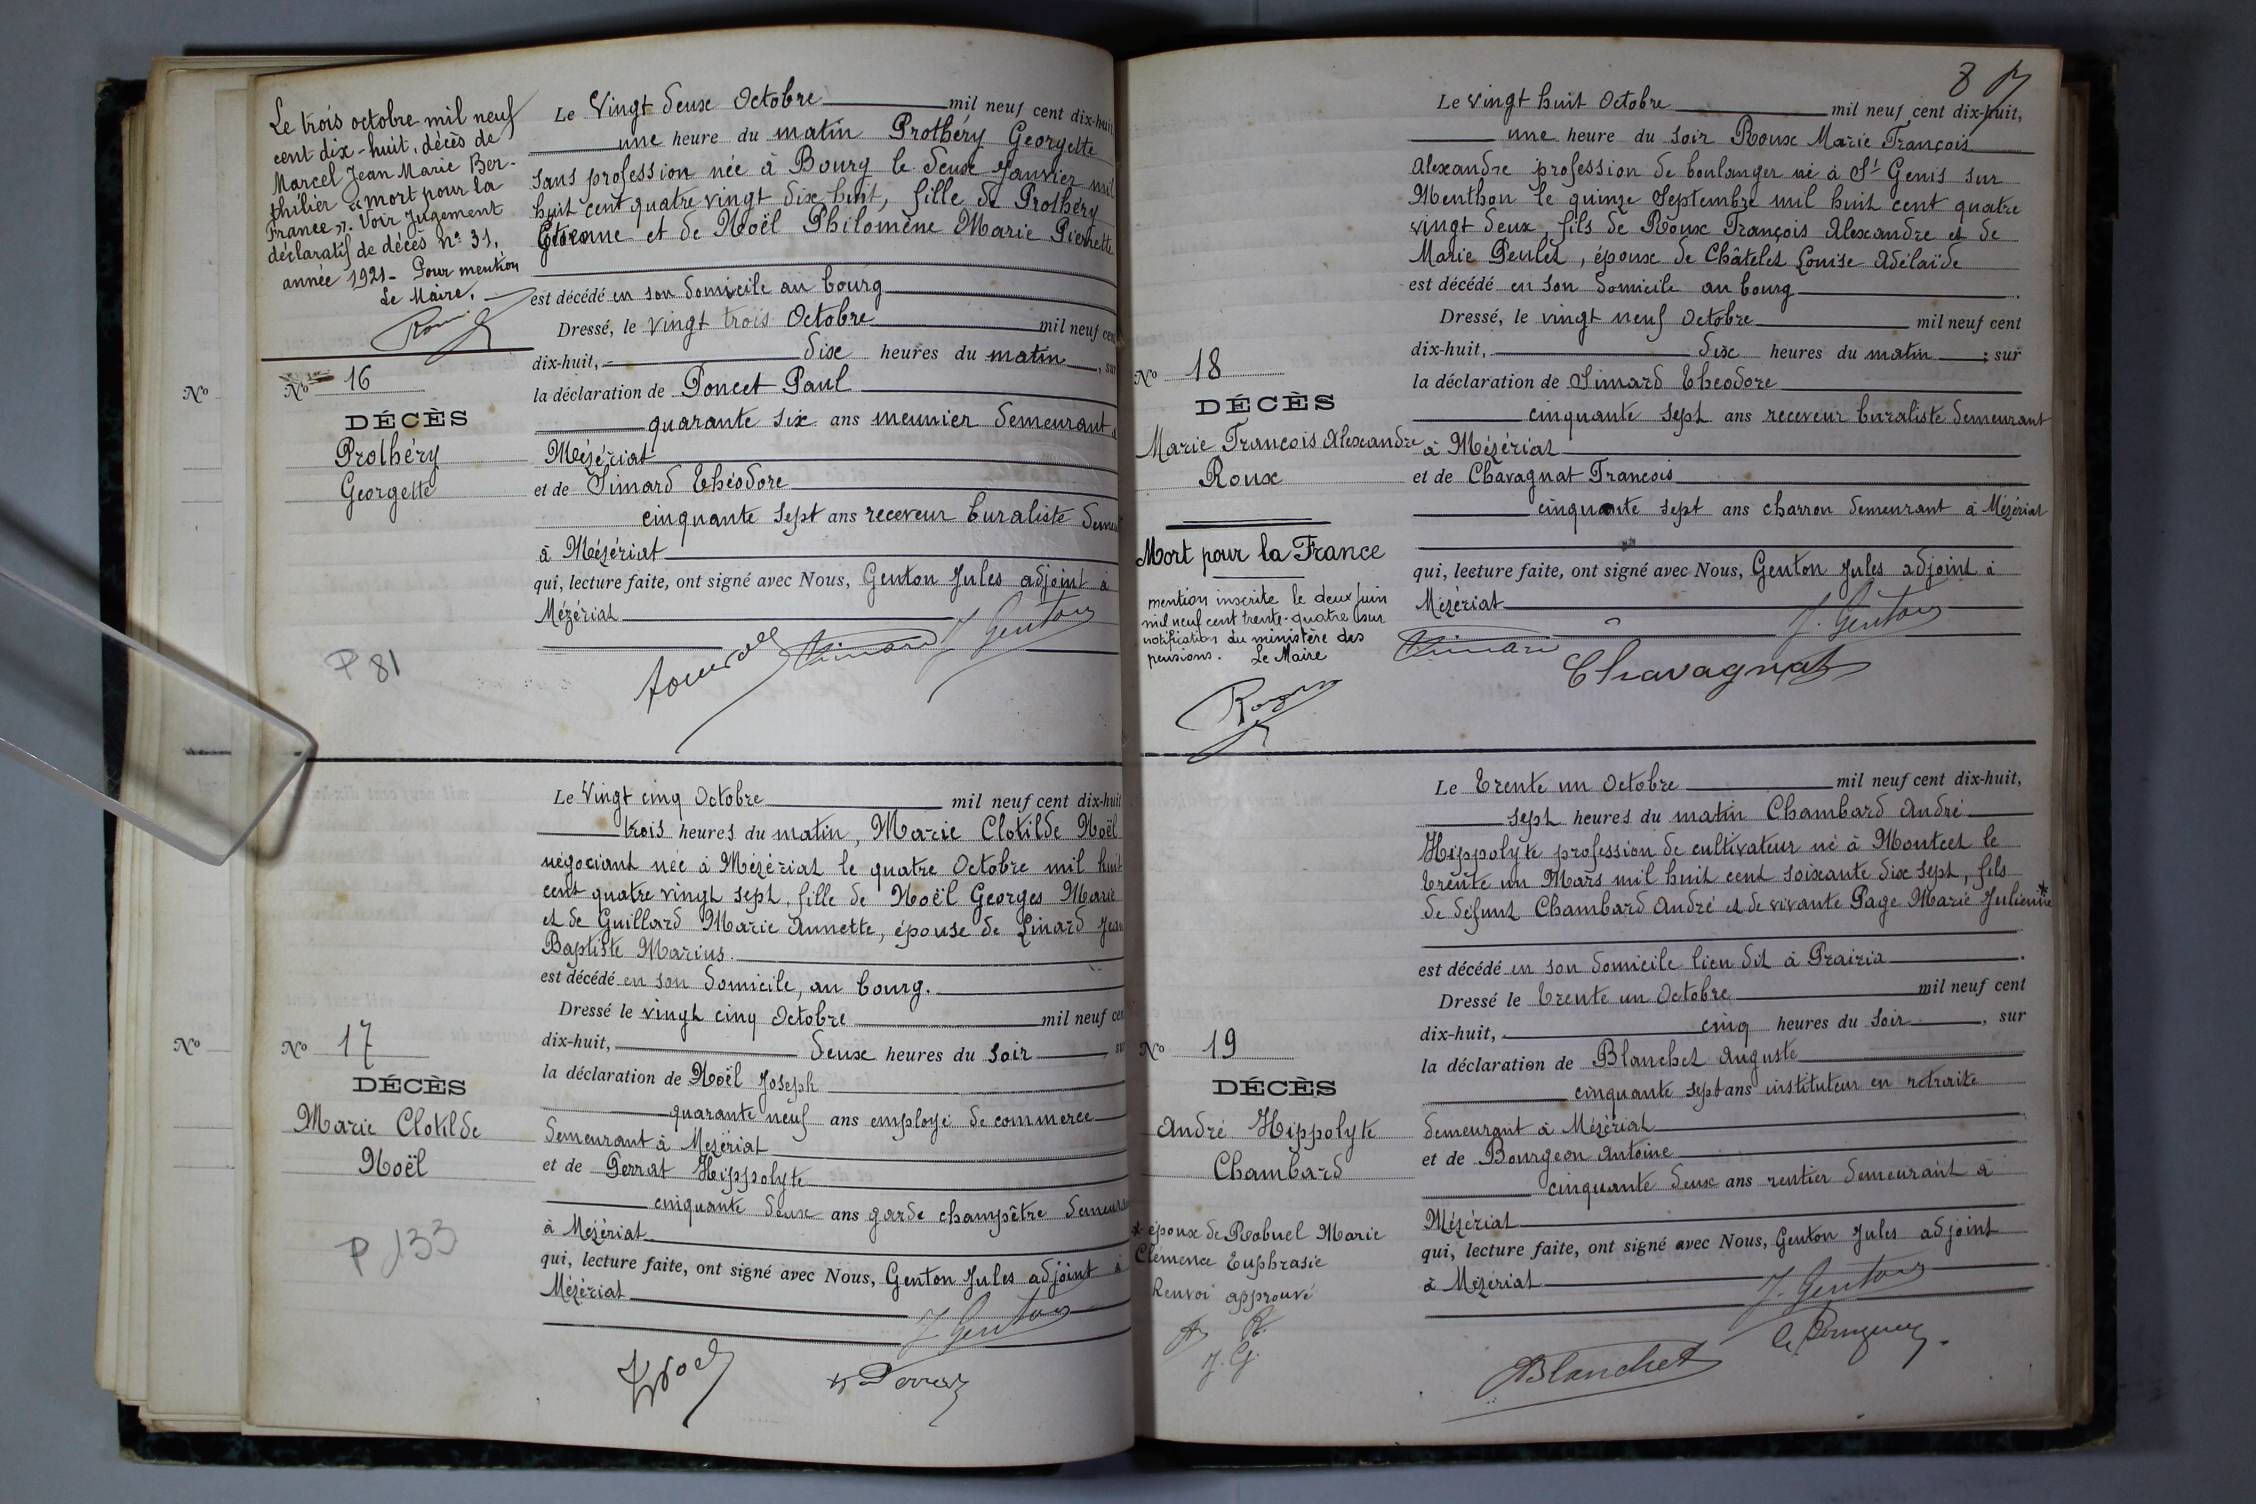 Le trois octobre mil neuf
cent dix-huit, décès de
Marcel Jean Marie Ber-
thilier "mort pour la
France". Voir Jugement
déclaratif de décès n° 31,
année 1921- Pour mention
Le Maire,
N° 16
DÉCÈS
Prothéry
Georgette
P 81
Le Vingt deux Octobre mil neuf cent dix-huit
une heure du matin Prothéry Georgette
sans profession née à Bourg le deux Janvier mil
huit cent quatre vingt dix huit, fille de Prothéry
Etienne et de Noël Philomène Marie Pierrette
est décédé en son domicile au bourg
Dressé, le vingt trois Octobre mil neuf cent
dix-huit, dix heures du matin, sur
la déclaration de Poncet Paul
quarante six ans meunier demeurant à
Mézériat
et de Simard Théodore
cinquante sept ans receveur buraliste demeu
à Mézériat
qui, lecture faite, ont signé avec Nous, Genton Jules adjoint à
Mézériat
Simard J Genton
N°
N°
N° 17
DÉCÈS
Marie Clotilde
Noël
P 133
Le Vingt cinq Octobre mil neuf cent dix-huit
trois heures du matin, Marie Clotilde Noël
négociant née à Mézériat le quatre Octobre mil huit
cent quatre vingt sept, fille de Noël Georges Marie
et de Guillard Marie Annette, épouse de Linard Jean
Baptiste Marius.
est décédé en son domicile, au bourg.
Dressé le vingt cinq Octobre mil neuf cent
dix-huit, deux heures du soir, sur
la déclaration de Noël Joseph
quarante neuf ans employé de commerce
demeurant à Mézériat
et de Perrat Hippolyte
cinquante deux ans garde champêtre demeura
à Mézériat
qui, lecture faite, ont signé avec Nous, Genton Jules adjoint à
Mézériat
J Genton
8
N° 18
DÉCÈS
Marie François Alexandre
Roux
Mort pour la France
mention inscrite le deux juin
mil neuf cent trente-quatre sur
notification du ministère des
pensions. Le Maire
Le vingt huit Octobre mil neuf cent dix-huit,
une heure du soir Roux Marie François
Alexandre profession de boulanger né à St Genis sur
Menthon le quinze Septembre mil huit cent quatre
vingt deux, fils de Roux François Alexandre et de
Marie Peulet, époux de Châtelet Louise Adélaïde
est décédé en son domicile au bourg.
Dressé, le vingt neuf Octobre mil neuf cent
dix-huit, dix heures du matin; sur
la déclaration de Simard Théodore
cinquante sept ans receveur buraliste demeurant
à Mézériat
et de Chavagnat François
cinquante sept ans charron demeurant à Mézériat
qui, lecture faite, ont signé avec Nous, Genton Jules adjoint à
Mézériat
Simard J. Genton
Chavagnat
N° 19
DÉCÈS
André Hippolyte
Chambard
* époux de Robuel Marie
Clémence Euphrasie
Renvoi approuvé
J. G.
Le Trente un Octobre mil neuf cent dix-huit,
sept heures du matin Chambard André
Hippolyte profession de cultivateur né à Montcet le
trente un Mars mil huit cent soixante dix sept, fils
de défunt Chambard André et de vivante Page Marie Julienne*
est décédé en son domicile lieu dit à Prairia.
Dressé le Trente un Octobre mil neuf cent
dix-huit, cinq heures du soir, sur
la déclaration de Blanchet Auguste
cinquante sept ans instituteur en retraite
demeurant à Mézériat
et de Bourgeon Antoine
cinquante deux ans rentier demeurant à
Mézériat
qui, lecture faite, ont signé avec Nous, Genton Jules adjoint
à Mézériat
J. Genton
Blanchet